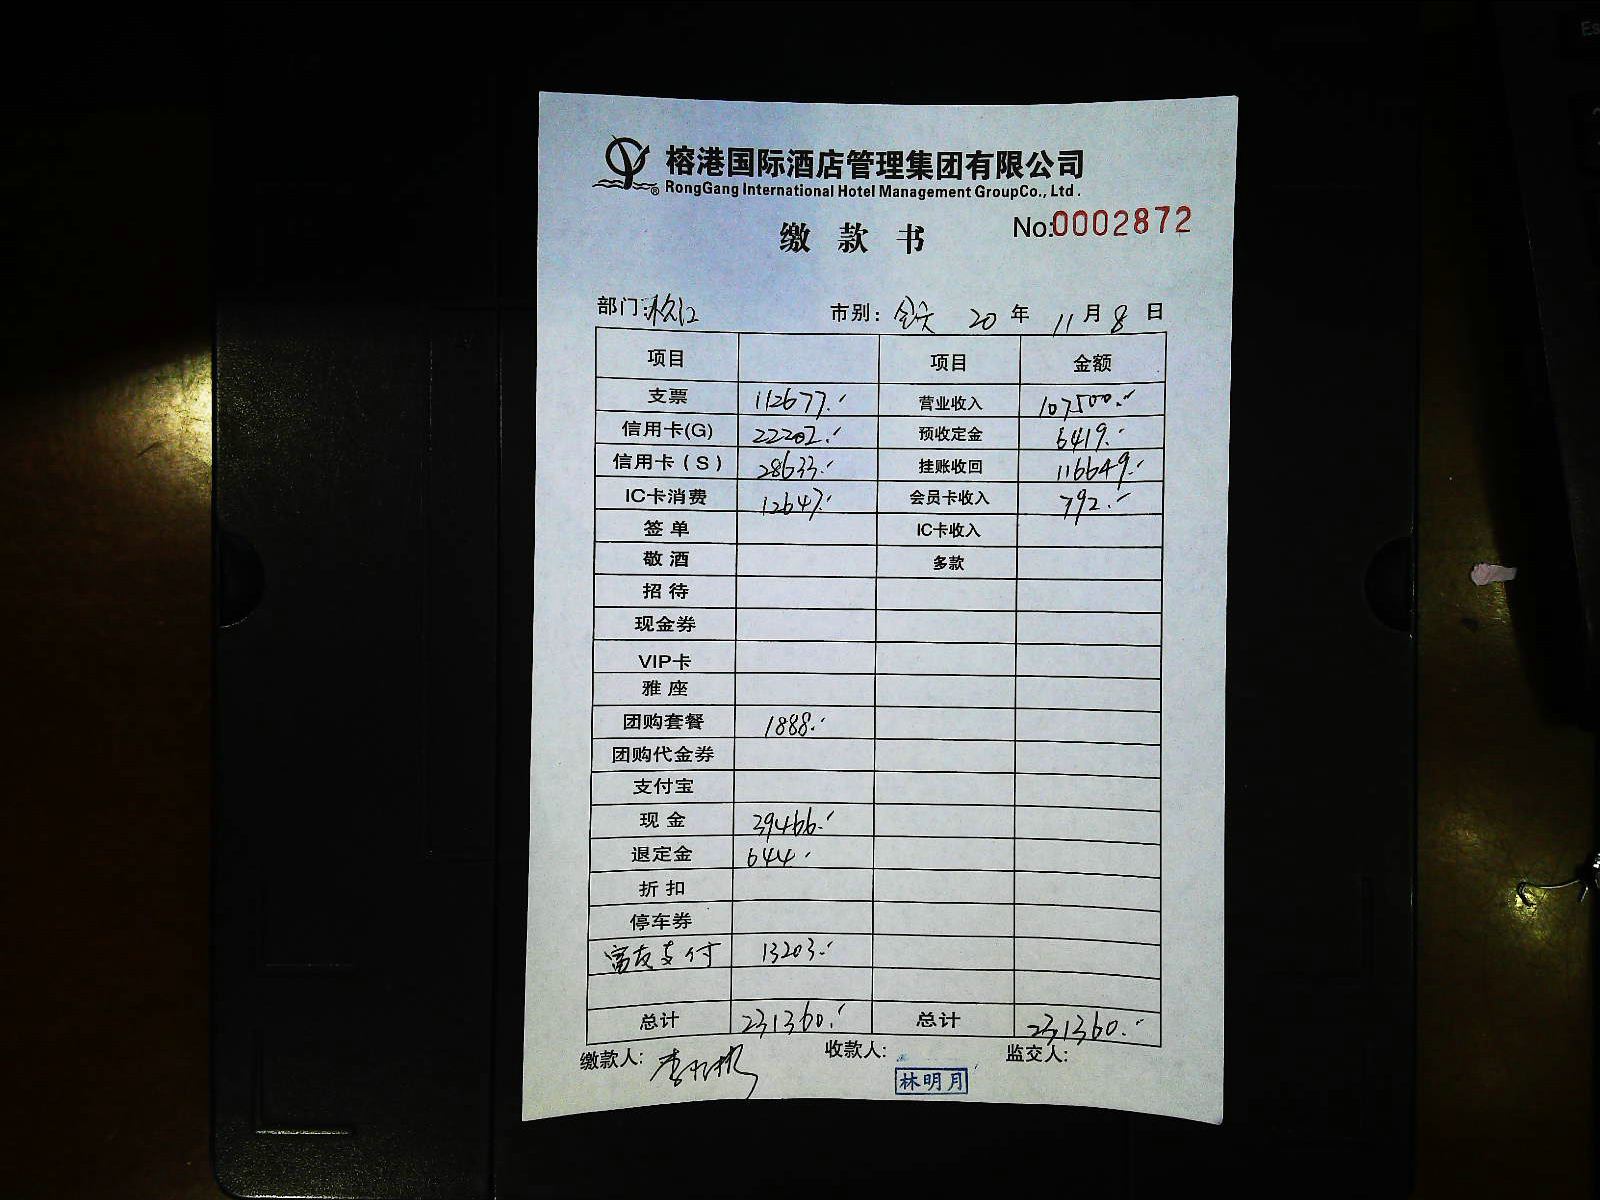 榕港国际酒店管理集团有限公司
RongGang International Hotel Management GroupCo., Ltd.
缴款书 No:0002872
部门: 市别: 全天 20 年 11 月 8 日
项目 项目 金额
支票 112677. 营业收入 107500.
信用卡(G) 22202. 预收定金 6419.
信用卡(S) 28633. 挂账收回 116649.
IC卡消费 12647. 会员卡收入 792.
签单 IC卡收入
敬酒 多款
招待
现金券
VIP卡
雅座
团购套餐 1888.
团购代金券
支付宝
现金 39466.
退定金 644.
折扣
停车券
富友支付 13203.
总计 231360. 总计 231360.
缴款人: 收款人: 监交人:
林明月
Es